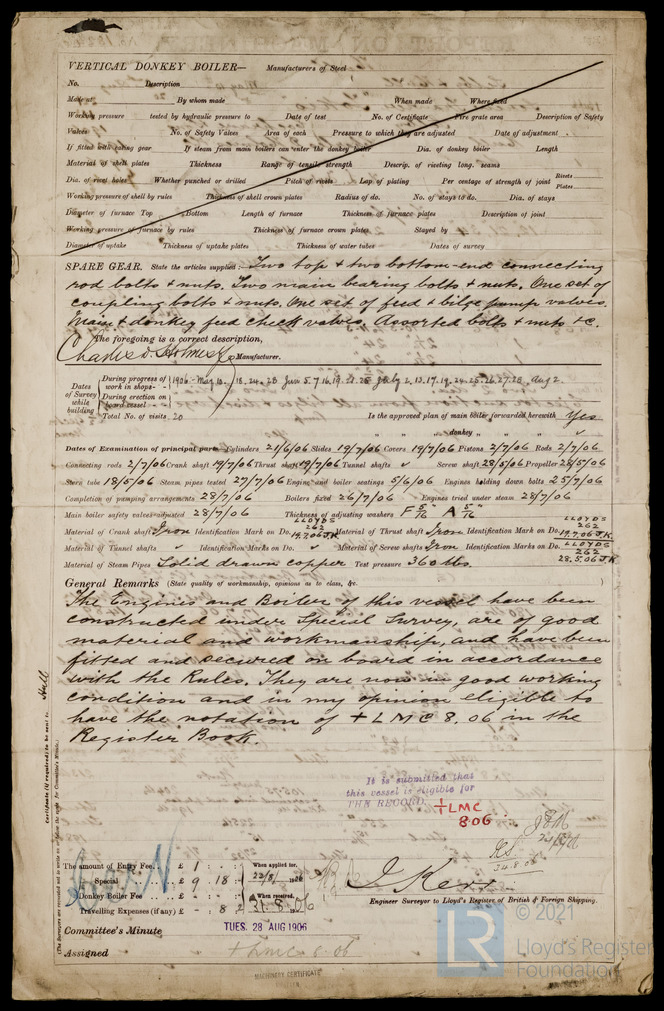 VERTICAL DONKEY BOILER— Manufacturers of Steel
No. Description
Made at By whom made When made Where fixed
Working pressure tested by hydraulic pressure to Date of test No. of Certificate Fire grate area Description of Safety
Valves No. of Safety Valves Area of each Pressure to which they are adjusted Date of adjustment
If fitted with easing gear If steam from main boilers can enter the donkey boiler Dia. of donkey boiler Length
Material of shell plates Thickness Range of tensile strength Descrip. of riveting long. seams
Dia. of rivet holes Whether punched or drilled Pitch of rivets Lap of plating Per centage of strength of joint Rivets Plates
Working pressure of shell by rules Thickness of shell crown plates Radius of do. No. of stays to do. Dia. of stays
Diameter of furnace Top Bottom Length of furnace Thickness of furnace plates Description of joint
Working pressure of furnace by rules Thickness of furnace crown plates Stayed by
Diameter of uptake Thickness of uptake plates Thickness of water tubes Dates of survey
SPARE GEAR. State the articles supplied:- Two top + two bottom-end connecting
rod bolts + nuts. Two main bearing bolts + nuts. One set of
coupling bolts + nuts. One set of feed & bilge pump valves.
Main + donkey feed check valves. Assorted bolts + nuts &c.
The foregoing is a correct description,
Charles D. Holmes & Co Manufacturer.
Dates of Survey while building
During progress of work in shops- - 1906-May 10. 18. 24. 28 Jun 5. 7. 16. 19. 21. 25 July 2. 13. 17. 19. 24. 25. 26. 27. 28 Aug 2.
During erection on board vessel- - -
Total No. of visits 20 Is the approved plan of main boiler forwarded herewith Yes
" " " donkey " " "
Dates of Examination of principal parts—Cylinders 21/6/06 Slides 19/7/06 Covers 19/7/06 Pistons 2/7/06 Rods 2/7/06
Connecting rods 2/7/06 Crank shaft 19/7/06 Thrust shaft 19/7/06 Tunnel shafts ✓ Screw shaft 28/5/06 Propeller 28/5/06
Stern tube 18/5/06 Steam pipes tested 27/7/06 Engine and boiler seatings 5/6/06 Engines holding down bolts 25/7/06
Completion of pumping arrangements 28/7/06 Boilers fixed 26/7/06 Engines tried under steam 28/7/06
Main boiler safety valves adjusted 28/7/06 Thickness of adjusting washers F 5/16 A 5/16
Material of Crank shaft Iron Identification Mark on Do. LLOYDS 262 19.7.06 J.K Material of Thrust shaft Iron Identification Mark on Do. LLOYDS 262 19.7.06 J.K
Material of Tunnel shafts ✓ Identification Marks on Do. ✓ Material of Screw shafts Iron Identification Marks on Do. LLOYDS 262 28.5.06 J.K
Material of Steam Pipes Solid drawn copper Test pressure 360 lbs.
General Remarks (State quality of workmanship, opinions as to class, &c.
The Engines and Boiler of this vessel have been
constructed under Special Survey, are of good
material and workmanship, and have been
fitted and secured on board in accordance
with the Rules. They are now in good working
condition and in my opinion eligible to
have the notation of + LMC 8.06 in the
Register Book.
Certificate (if required) to be sent to Hull
(The Surveyors are requested not to write on or below the space for Committee's Minute.)
It is submitted that
this vessel is eligible for
THE RECORD. + LMC
8.06
24.8.06
The amount of Entry Fee.. £ 1 : : When applied for,
Special £ 9 : 18 : 22/8/1906
Donkey Boiler Fee £ : : When received,
Travelling Expenses (if any) £ : 8 : 2 31.8.1906
J. Kerr
Engineer Surveyor to Lloyd's Register of British & Foreign Shipping.
Committee's Minute TUES. 28 AUG 1906
Assigned + LMC 8.06
MACHINERY CERTIFICATE
© 2021
Lloyd's Register
Foundation